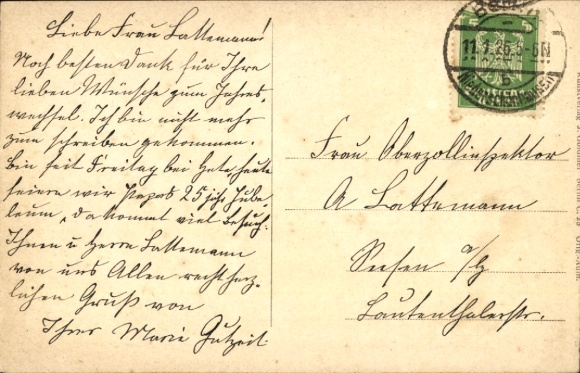 Liebe Frau Lattemann!
Noch besten Dank für Ihre
lieben Wünsche zum Jahres-
wechsel. Ich bin nicht mehr
zum schreiben gekommen.
Bin seit Freitag bei heute
feiern wir Papas 25 jähr. Jubi-
leum, da kommt viel Besuch.
Ihnen u Herrn Lattemann
von uns Allen recht herz-
lichen Gruß von
Ihrer Marie Gutzeit.
5
11.1.26. 5-6N
b
Frau Oberzollinspektor
A Lattemann
Seesen a/H
Lautenthalerstr.